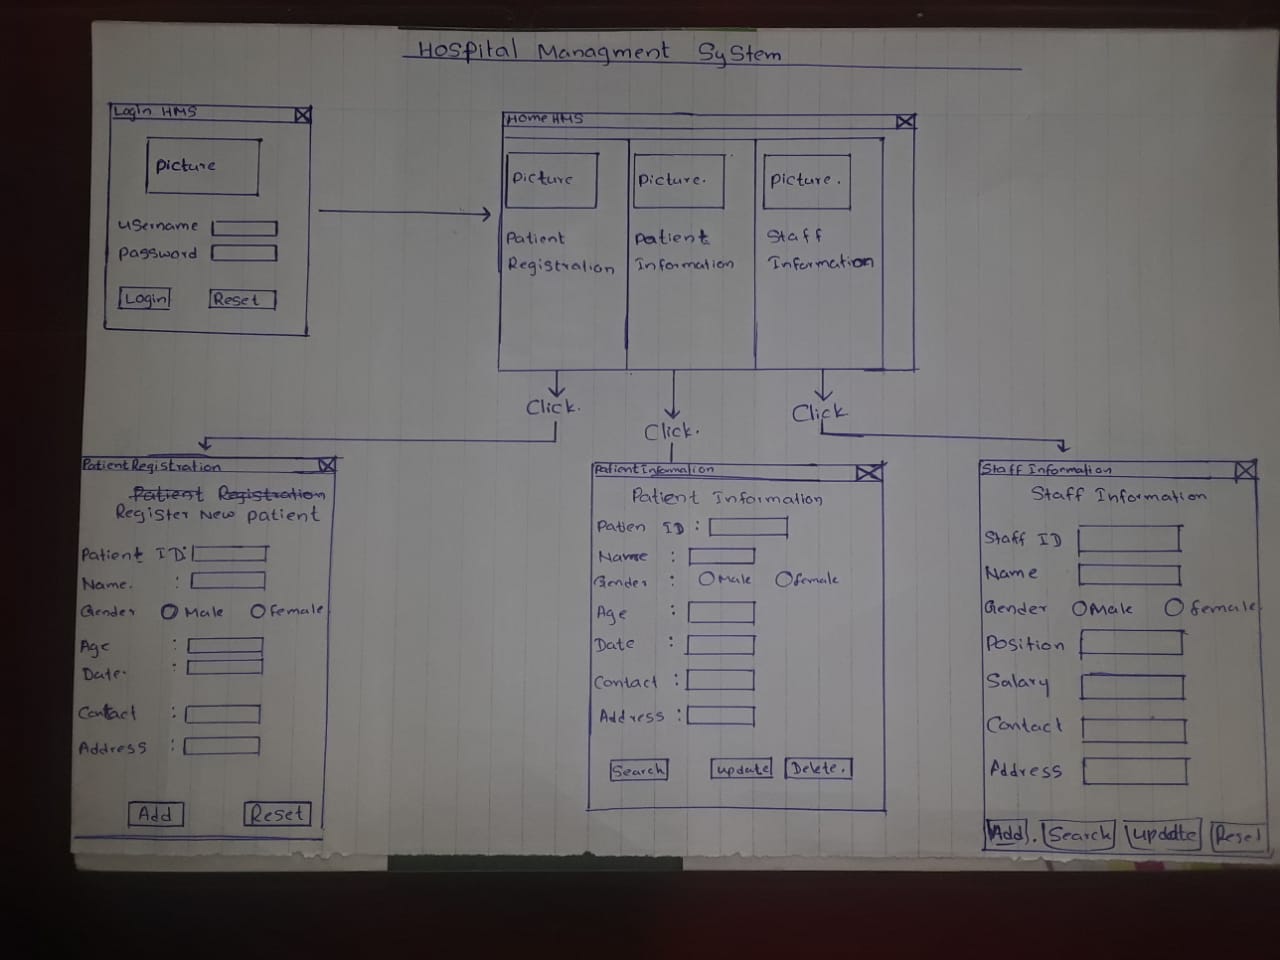 Hospital Managment System
Login HMS
Picture
username
password
Login Reset
Home HMS
Picture
Patient
Registration
Picture.
Patient
Information
Picture.
Staff
Information
Click.
Click.
Click
Patient Registration
Patient Registration
Register New patient
Patient ID:
Name. :
Gender Male female
Age :
Date. :
Contact :
Address :
Add Reset
Patient Information
Patient Information
Patien ID :
Name :
Gender : Male female
Age :
Date :
Contact :
Address :
Search update Delete.
Staff Information
Staff Information
Staff ID
Name
Gender Male female
Position
Salary
Contact
Address
Add. Search update Reset